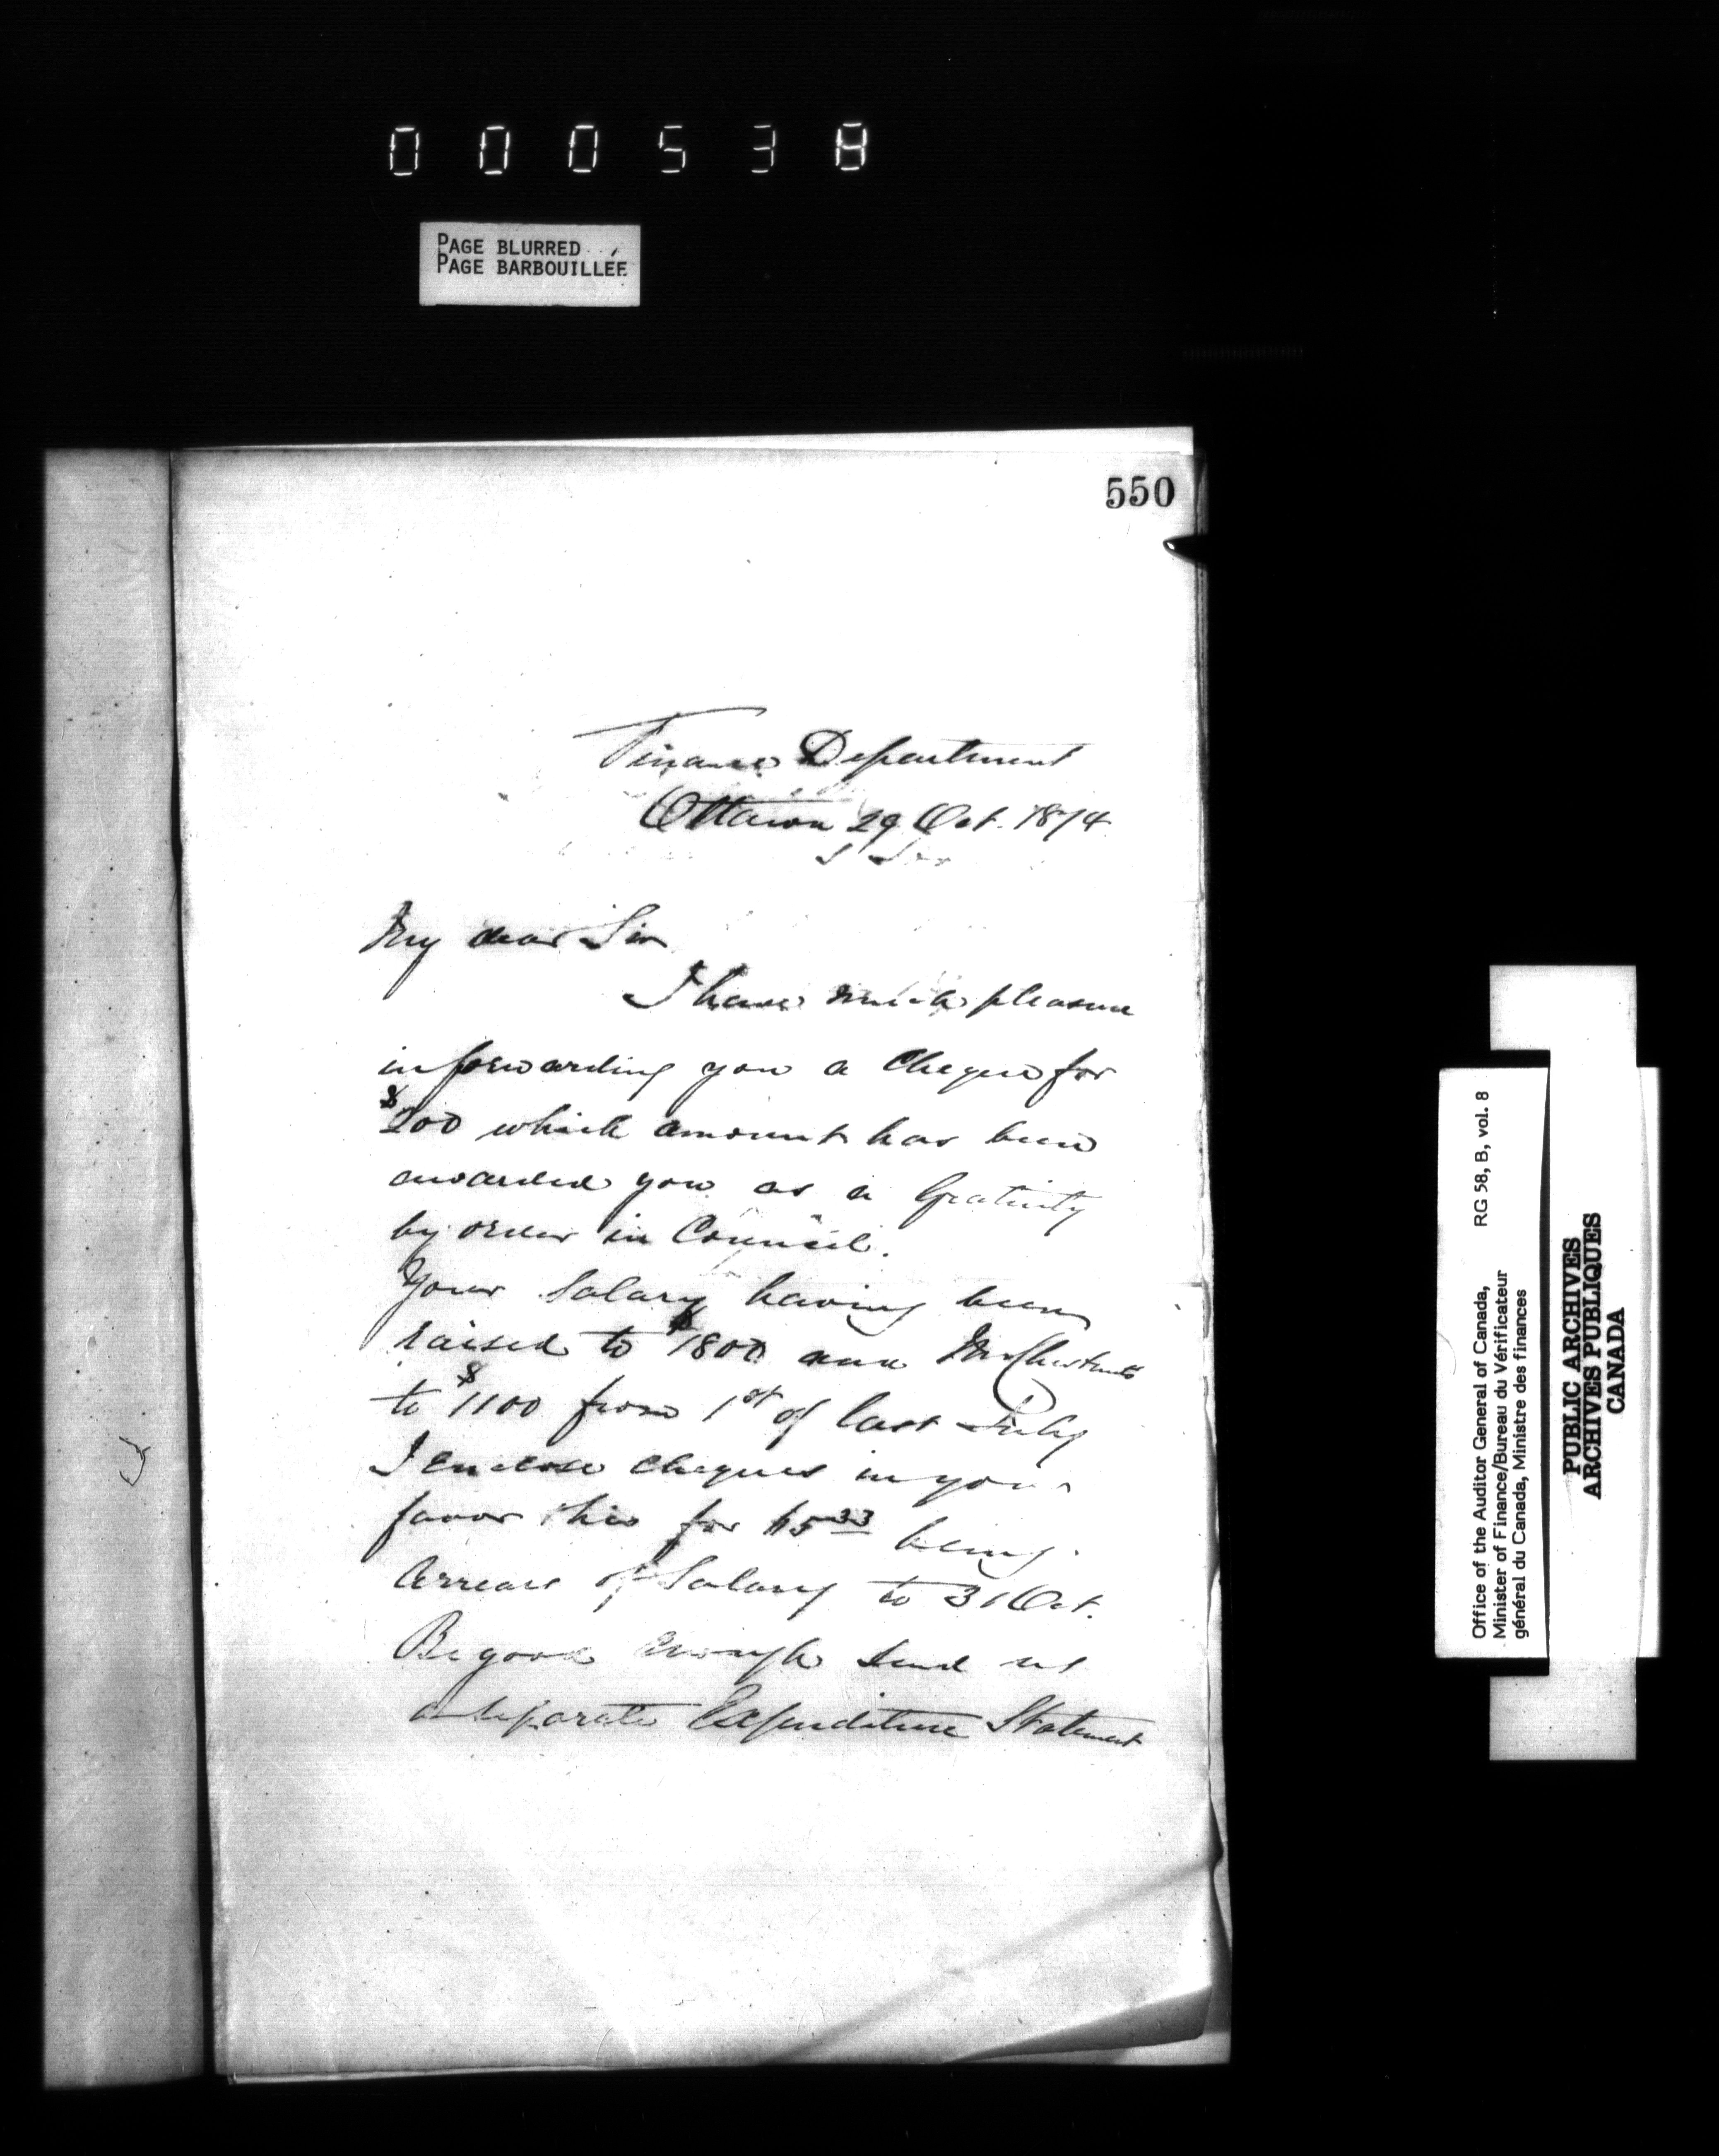 000538
PAGE BLURRED
PAGE BARBOUILLÉE
550
Finance Department
Ottawa 29 Oct. 1874
My dear Sir
I have much pleasure
in forwarding you a Cheque for
$200 which amount has been
awarded you as a Gratuity
by order in Council.
Your Salary having been
raised to $1800 and Mr
to $1100 from 1st of last July
I enclose cheques in your
favor this for being
Arrears of Salary to 31 Oct.
Be good enough send us
a separate Expenditure Statement
Office of the Auditor General of Canada, RG 58, B, vol. 8
Minister of Finance/Bureau du Vérificateur
général du Canada, Ministre des finances
PUBLIC ARCHIVES
ARCHIVES PUBLIQUES
CANADA